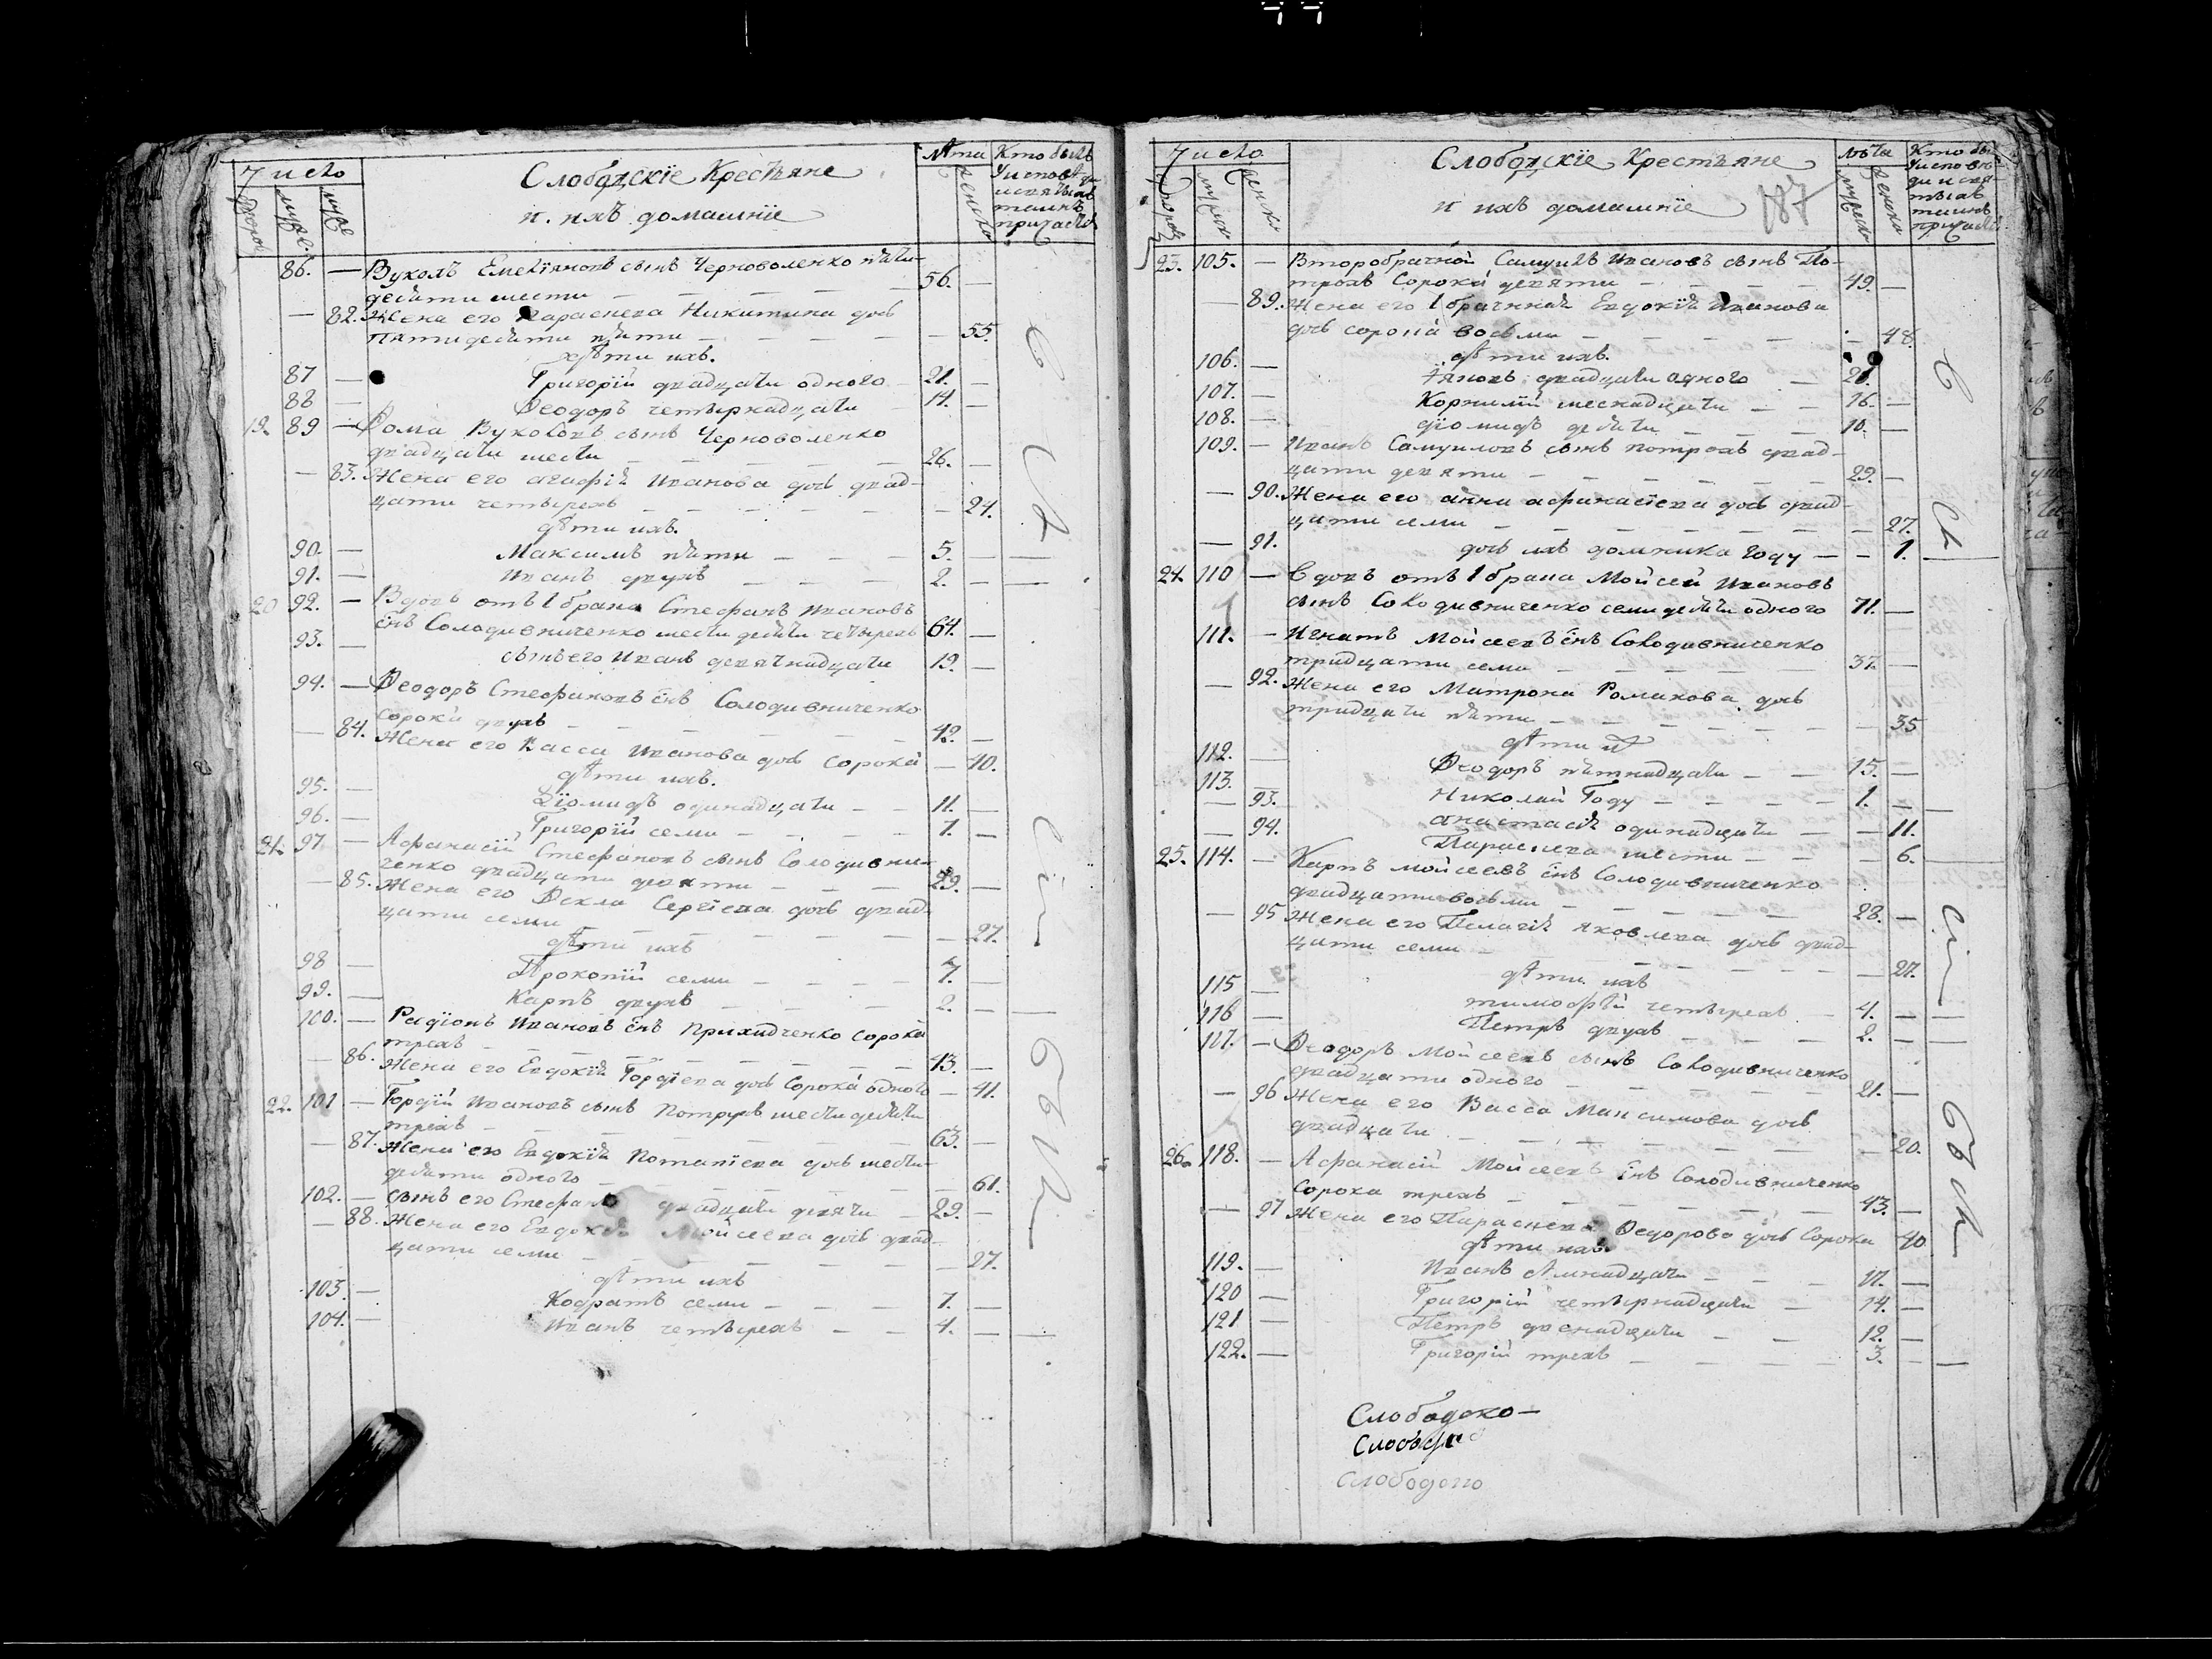 Число
Слободскіе Крестьяне
и ихъ домашніе
86. — Вуколъ Емеліяновъ сынъ Черноволенко пяти-
десяти шести — 56. —
— 82. Жена его Параскева Никитина дочь
пятидесяти пяти — — 55.
дѣти ихъ.
87 — Григорій двадцати одного 21. —
88 — Ѳеодоръ четырнадцати 14. —
19. 89 — Ѳома Вуколовъ сынъ Черноволенко
двадцати шести — 26. —
— 83. Жена его Агафія Иванова дочь двад-
цати четырехъ — — 24.
дѣти ихъ.
90. — Максимъ пяти — 5. —
91. — Иванъ двухъ — 2. —
20 92. — Вдовъ отъ 1 брака Стефанъ Ивановъ
снъ Солодивниченко шестидесяти четырехъ 64. —
93. — сынъ его Иванъ девятнадцати 19. —
94. — Ѳеодоръ Стефановъ снъ Солодивниченко
сорока двухъ — 42. —
— 84. Жена его Васса Иванова дочь сорока — 40.
дѣти ихъ.
95. — Діомидъ одинадцати — 11. —
96. — Григорій семи — 7. —
21. 97 — Афанасій Стефановъ сынъ Солодивни-
ченко двадцати девяти — 29. —
— 85. Жена его Ѳекла Сергіева дочь двад-
цати семи — — 27.
дѣти ихъ
98 — Прокопій семи — 7. —
99. — Карпъ двухъ — 2. —
100. — Радіонъ Ивановъ снъ Приходченко сорока
трехъ — 43. —
— 86. Жена его Евдокія Гордіева дочь сорока одного — 41.
22. 101 — Гордій Ивановъ сынъ Потрухъ шестидесяти
трехъ — 63. —
— 87. Жена его Евдокія Потапіева дочь шести-
десяти одного — — 61.
102. — сынъ его Стефанъ двадцати девяти — 29. —
— 88. Жена его Евдокія Мойсеева дочь двад-
цати семи — — 27.
дѣти ихъ
103. — Кодратъ семи — 7. —
104. — Иванъ четырехъ — 4. —
Число
Слободскіе Крестьяне
и ихъ домашніе
187
23. 105. — Второбрачной Самуилъ Ивановъ сынъ По-
трохъ сорока девяти — 49. —
— 89. Жена его 1 брачная Евдокія Иванова
дочь сорока восьми — — 48.
дѣти ихъ.
106. — двадцати одного — 21. —
107. — Корнилій шеснадцати — 16. —
108. — Діомидъ десяти — 10. —
109. — Иванъ Самуиловъ сынъ Потрохъ двад-
цати девяти — 29. —
— 90. Жена его Анна Афанасіева дочь двад-
цати семи — — 27.
— 91. дочь ихъ Домника году — — 1.
24. 110 — Вдовъ отъ 1 брака Мойсей Ивановъ
сынъ Солодивниченко семидесяти одного 71. —
111. — Игнатъ Мойсеевъ снъ Солодивниченко
тридцати семи — 37. —
— 92. Жена его Матрона Романова дочь
тридцати пяти — — 35
дѣти их
112. — Ѳеодоръ пятнадцати — 15. —
113. — Николай году — 1. —
— 93. Анастасія одинадцати — — 11.
— 94. Параскева шести — — 6.
25. 114. — Карпъ Мойсеевъ снъ Солодивниченко
двадцати восьми — 28. —
— 95 Жена его Пелагія Яковлева дочь двад-
цати семи — — 27.
дѣти ихъ
115 — Тимофѣй четырехъ — 4. —
116 — Петръ двухъ — 2. —
117. — Ѳеодоръ Мойсеевъ сынъ Солодивниченко
двадцати одного — 21. —
— 96 Жена его Васса Максимова дочь
двадцати — — 20.
26. 118. — Афанасій Мойсеевъ снъ Солодивниченко
сорока трехъ — 43. —
— 97 Жена его Параскева Ѳедорова дочь сорока 40
дѣти ихъ
119. — Иванъ семнадцати — 17. —
120 — Григорій четырнадцати — 14. —
121 — Петръ двенадцати — 12. —
122. — Григорій трехъ — 3. —
Слободско —